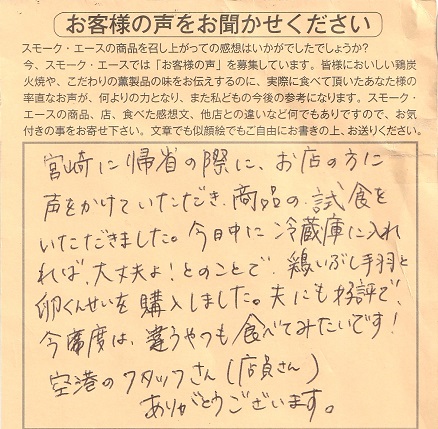 お客様の声をお聞かせください
スモーク・エースの商品を召し上がっての感想はいかがでしたでしょうか?
今、スモーク・エースでは「お客様の声」を募集しています。皆様においしい鶏炭
火焼や、こだわりの薫製品の味をお伝えするのに、実際に食べて頂いたあなた様の
率直なお声が、何よりの力となり、また私どもの今後の参考になります。スモーク・
エースの商品、店、食べた感想文、他店との違いなど何でもありですので、お気
付きの事をお寄せ下さい。文章でも似顔絵でもご自由にお書きの上、お送りください。
宮崎に帰省の際に、お店の方に
声をかけていただき、商品の試食を
いただきました。今日中に冷蔵庫に入れ
れば、大丈夫よ!とのことで、鶏いぶし手羽と
卵くんせいを購入しました。夫にも好評で、
今度は、違うやつも食べてみたいです!
空港のスタッフさん(店員さん)
ありがとうございます。